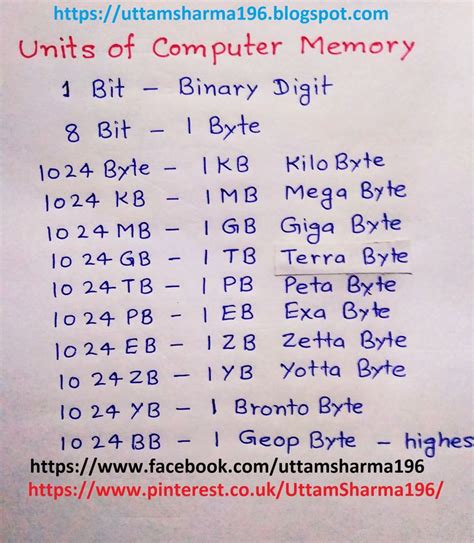 https://uttamsharma196.blogspot.com
Units of Computer Memory
1 Bit – Binary Digit
8 Bit – 1 Byte
1024 Byte – 1 KB Kilo Byte
1024 KB – 1 MB Mega Byte
1024 MB – 1 GB Giga Byte
1024 GB – 1 TB Terra Byte
1024 TB – 1 PB Peta Byte
1024 PB – 1 EB Exa Byte
1024 EB – 1 ZB Zetta Byte
1024 ZB – 1 YB Yotta Byte
1024 YB – 1 Bronto Byte
1024 BB – 1 Geop Byte – highes
https://www.facebook.com/uttamsharma196
https://www.pinterest.co.uk/UttamSharma196/